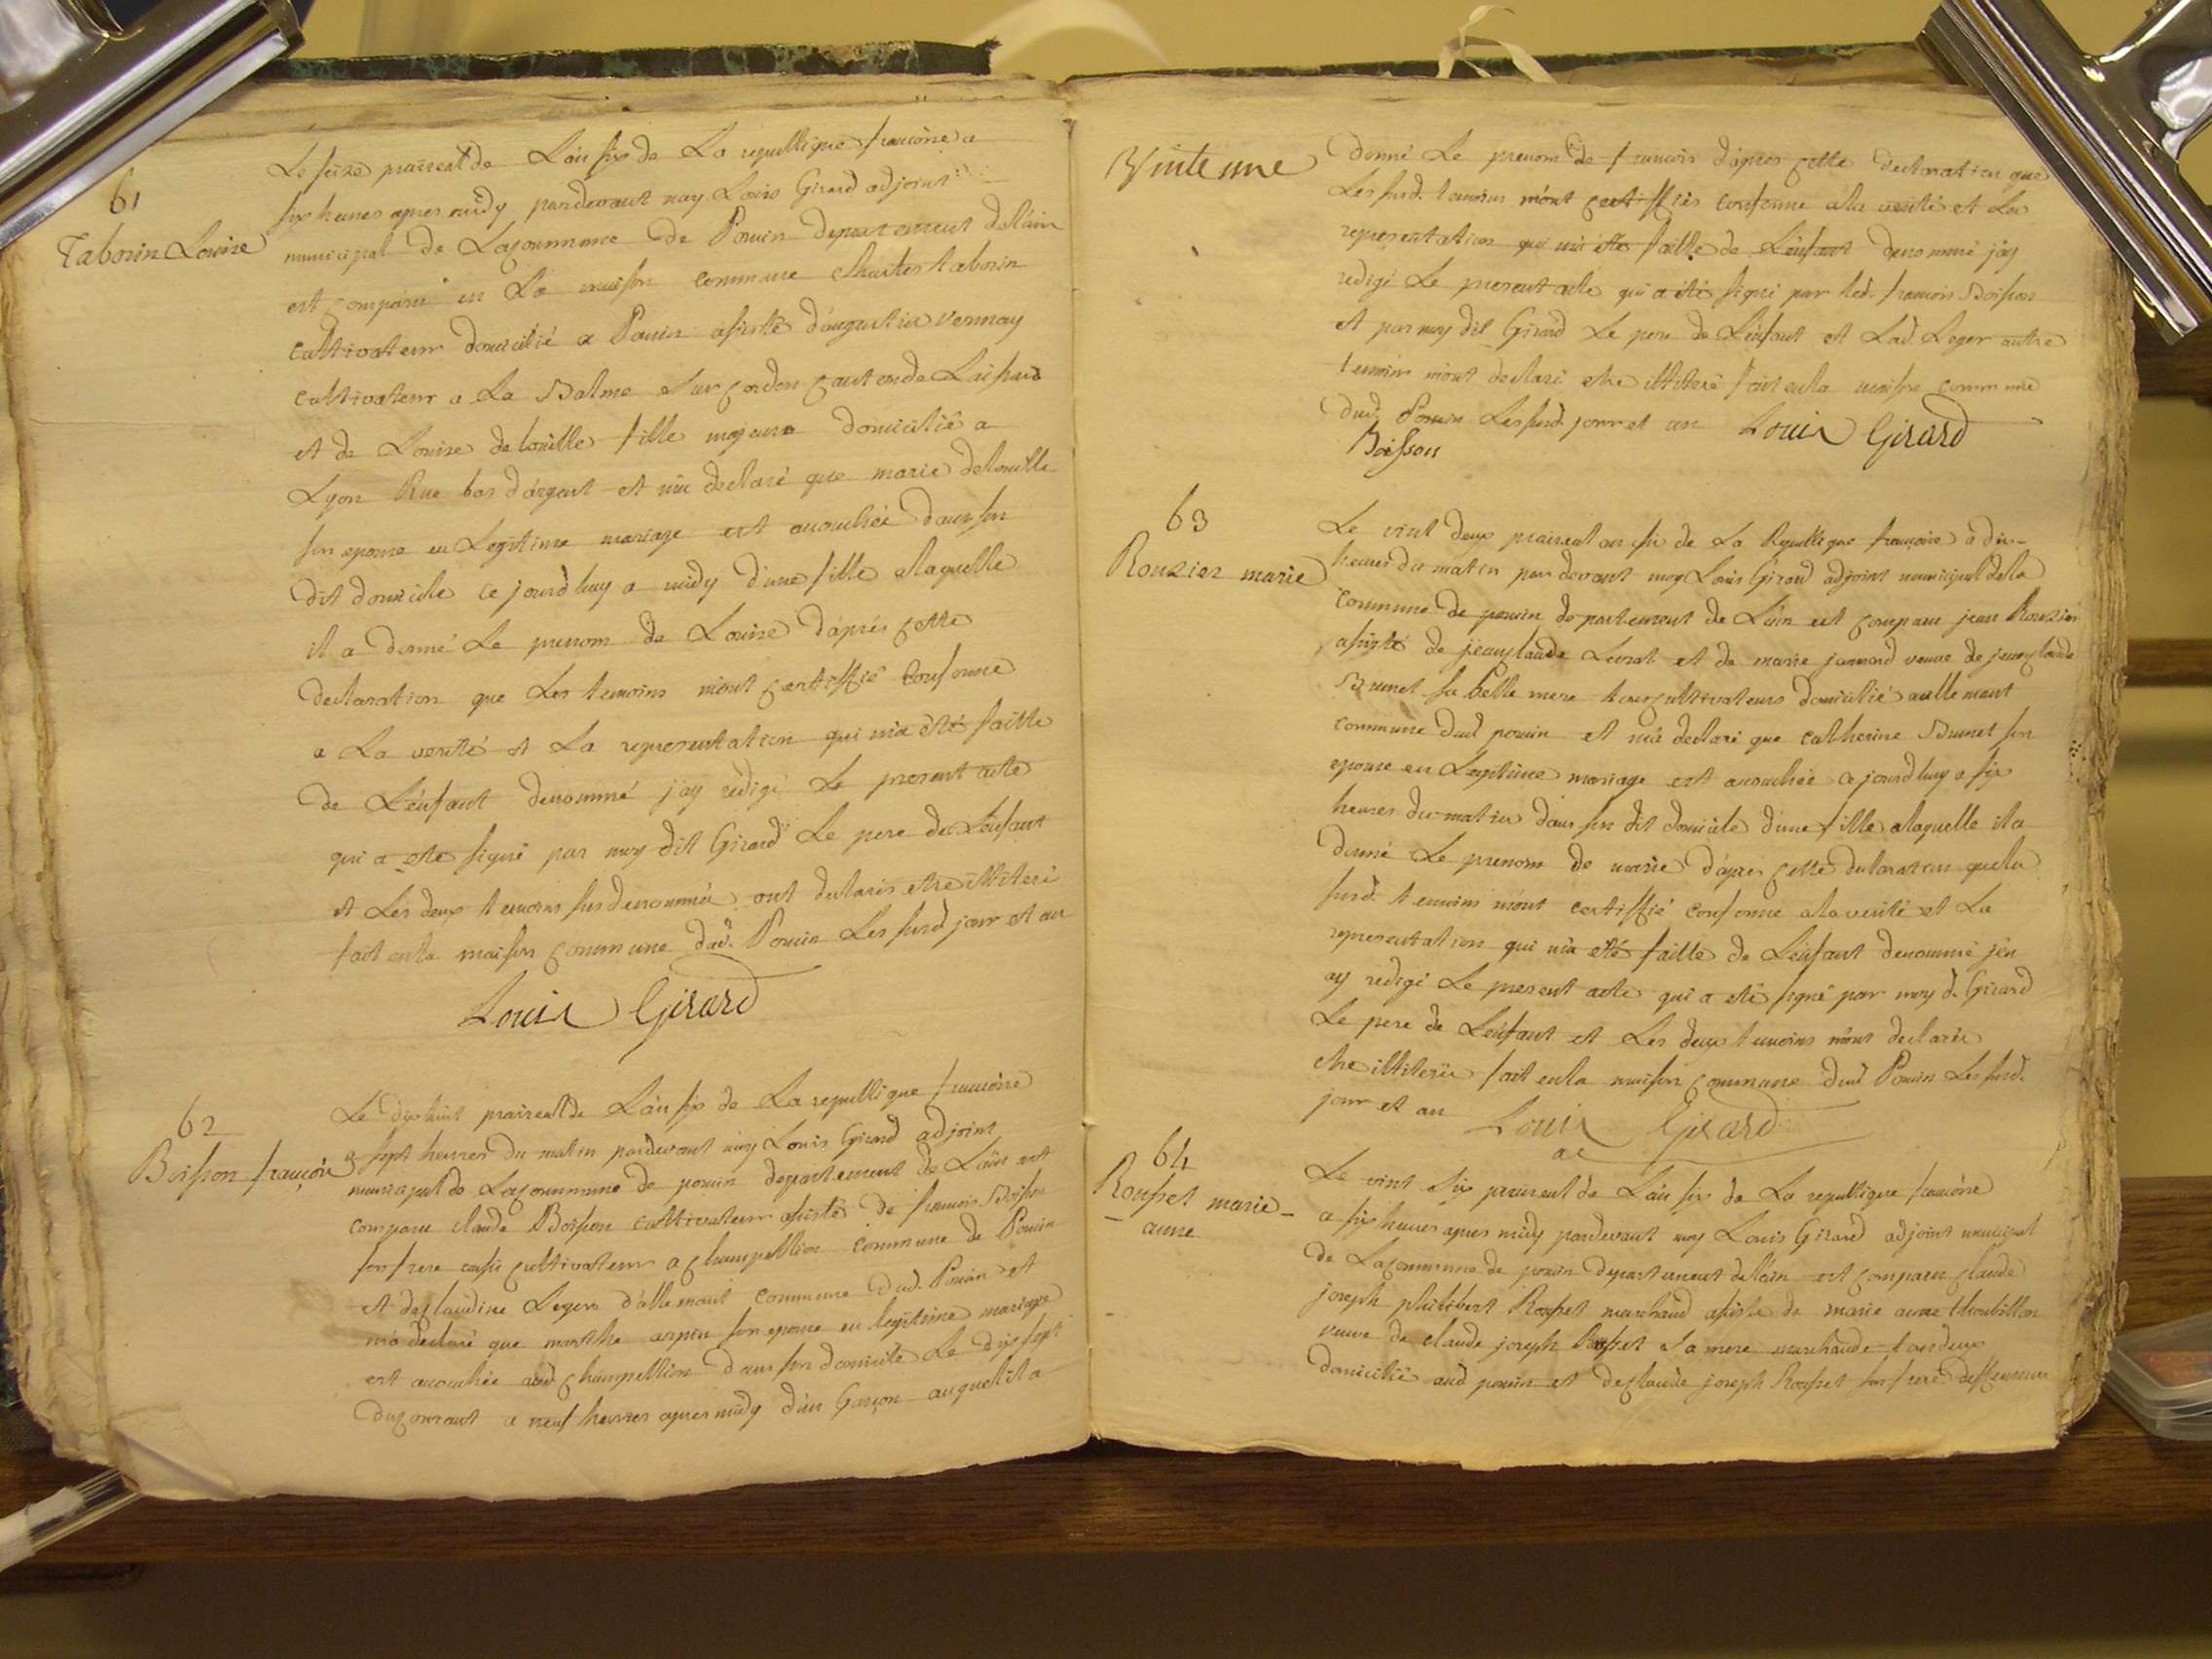 61
Taborin Louise
Le seize praireal de L'an six de La republique francoise a
six heures apres midy pardevant moy Louis Girard adjoint
municipal de La commune de Poncin departement de l'ain
est comparu en La maison commune Charles taborin
cultivateur domicilié a Poncin asisté d'augustin vennay
cultivateur a La Balme sur cerdon canton de
et de Louise delouille fille majeure domicilié a
Lyon Rue bas d'argent et m'a declaré que marie delouille
son epouse en Legitime mariage est accouchée dans son
dit domicile ce jourdhuy a midy d'une fille alaquelle
il a donné Le prenom de Louise d'aprés cette
declaration que Les temoins m'ont certiffié conforme
a La verité et La representation qui m'a eté faitte
de L'enfant denommé j'ay redigé Le present acte
qui a eté signé par moy dit Girard Le pere de L'enfant
et Les deux temoins susdenommés ont declarés etre illiteré
fait en la maison commune dud. Poncin Les susd jour et an
Louis Girard
62
Boisson françois
Le dix huit praireal de L'an six de La republique francoise
a sept heures du matin pardevant moy Louis Girard adjoint
municipal de La commune de poncin departement de L'ain est
comparu claude Boisson cultivateur asisté de francois Boisson
son frere aussi cultivateur a champeillon commune de Poncin
et de claudine Leger d'allement commune dud. Poncin et
m'a declaré que marthe arpin son epouse en legitime mariage
est accouchée aud champeillon dans son domicile Le dix sept
du courant a neuf heures apres midy d'un Garçon auquel il a
Vinte une
donné Le prenom de francois d'apres cette declaration que
Les susd. temoins m'ont certiffiés conforme a la verité et La
representation qui m'a eté faitte de L'enfant denommé j'ay
redigé Le present acte qui a eté signé par led. francois Boisson
et par moy dit Girard Le pere de L'enfant et Lad. Leger autre
temoin m'ont declaré etre illiteré fait en la maison commune
dud. Poncin Les susd. jour et an Louis Girard
Boisson
63
Rouzier marie
Le vint deux praireal an six de La Republique françoise a dix
heures du matin par devant moy Louis Girard adjoint municipal de la
commune de poncin departement de L'ain est comparu jean Rouzier
asisté de jean claude Levrat et de marie jannard veuve de jean claude
Brunet sa belle mere tous cultivateurs domicilié a allement
commune dud poncin et m'a declaré que catherine Brunet son
epouse en Legitime mariage est accouchée ce jourdhuy a six
heures du matin dans son dit domicile d'une fille alaquelle il a
donné Le prenom de marie d'apres cette declaration que la
susd. temoins m'ont certiffié conforme a la verité et La
representation qui m'a eté faitte de L'enfant denommé j'en
ay redigé Le present acte qui a eté signé par moy d. Girard
Le pere de L'enfant et Les deux temoins m'ont declarés
etre illiterés fait en la maison commune dud. Poncin Les susd.
jour et an Louis Girard
64
Rousset marie
anne
Le vint six praireal de L'an six de La republique francoise
a six heures apres midy pardevant moy Louis Girard adjoint municipal
de La commune de poncin departement de l'ain est comparu claude
joseph philibert Rousset marchand asisté de marie anne
veuve de claude joseph Rousset sa mere marchande tous deux
domicilié aud poncin et de claude joseph Rousset son frere